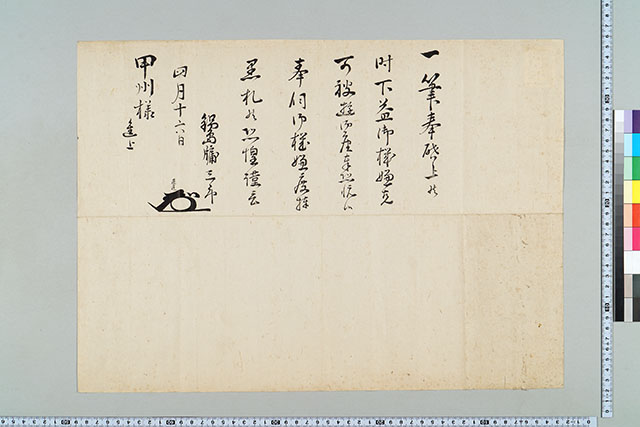 一筆奉啓上候
時下益御機嫌克
可被遊御座奉恐悦候
奉伺御機嫌度捧
愚札候恐惶謹言
鍋島 三郎
四月十六日
甲州様
進上